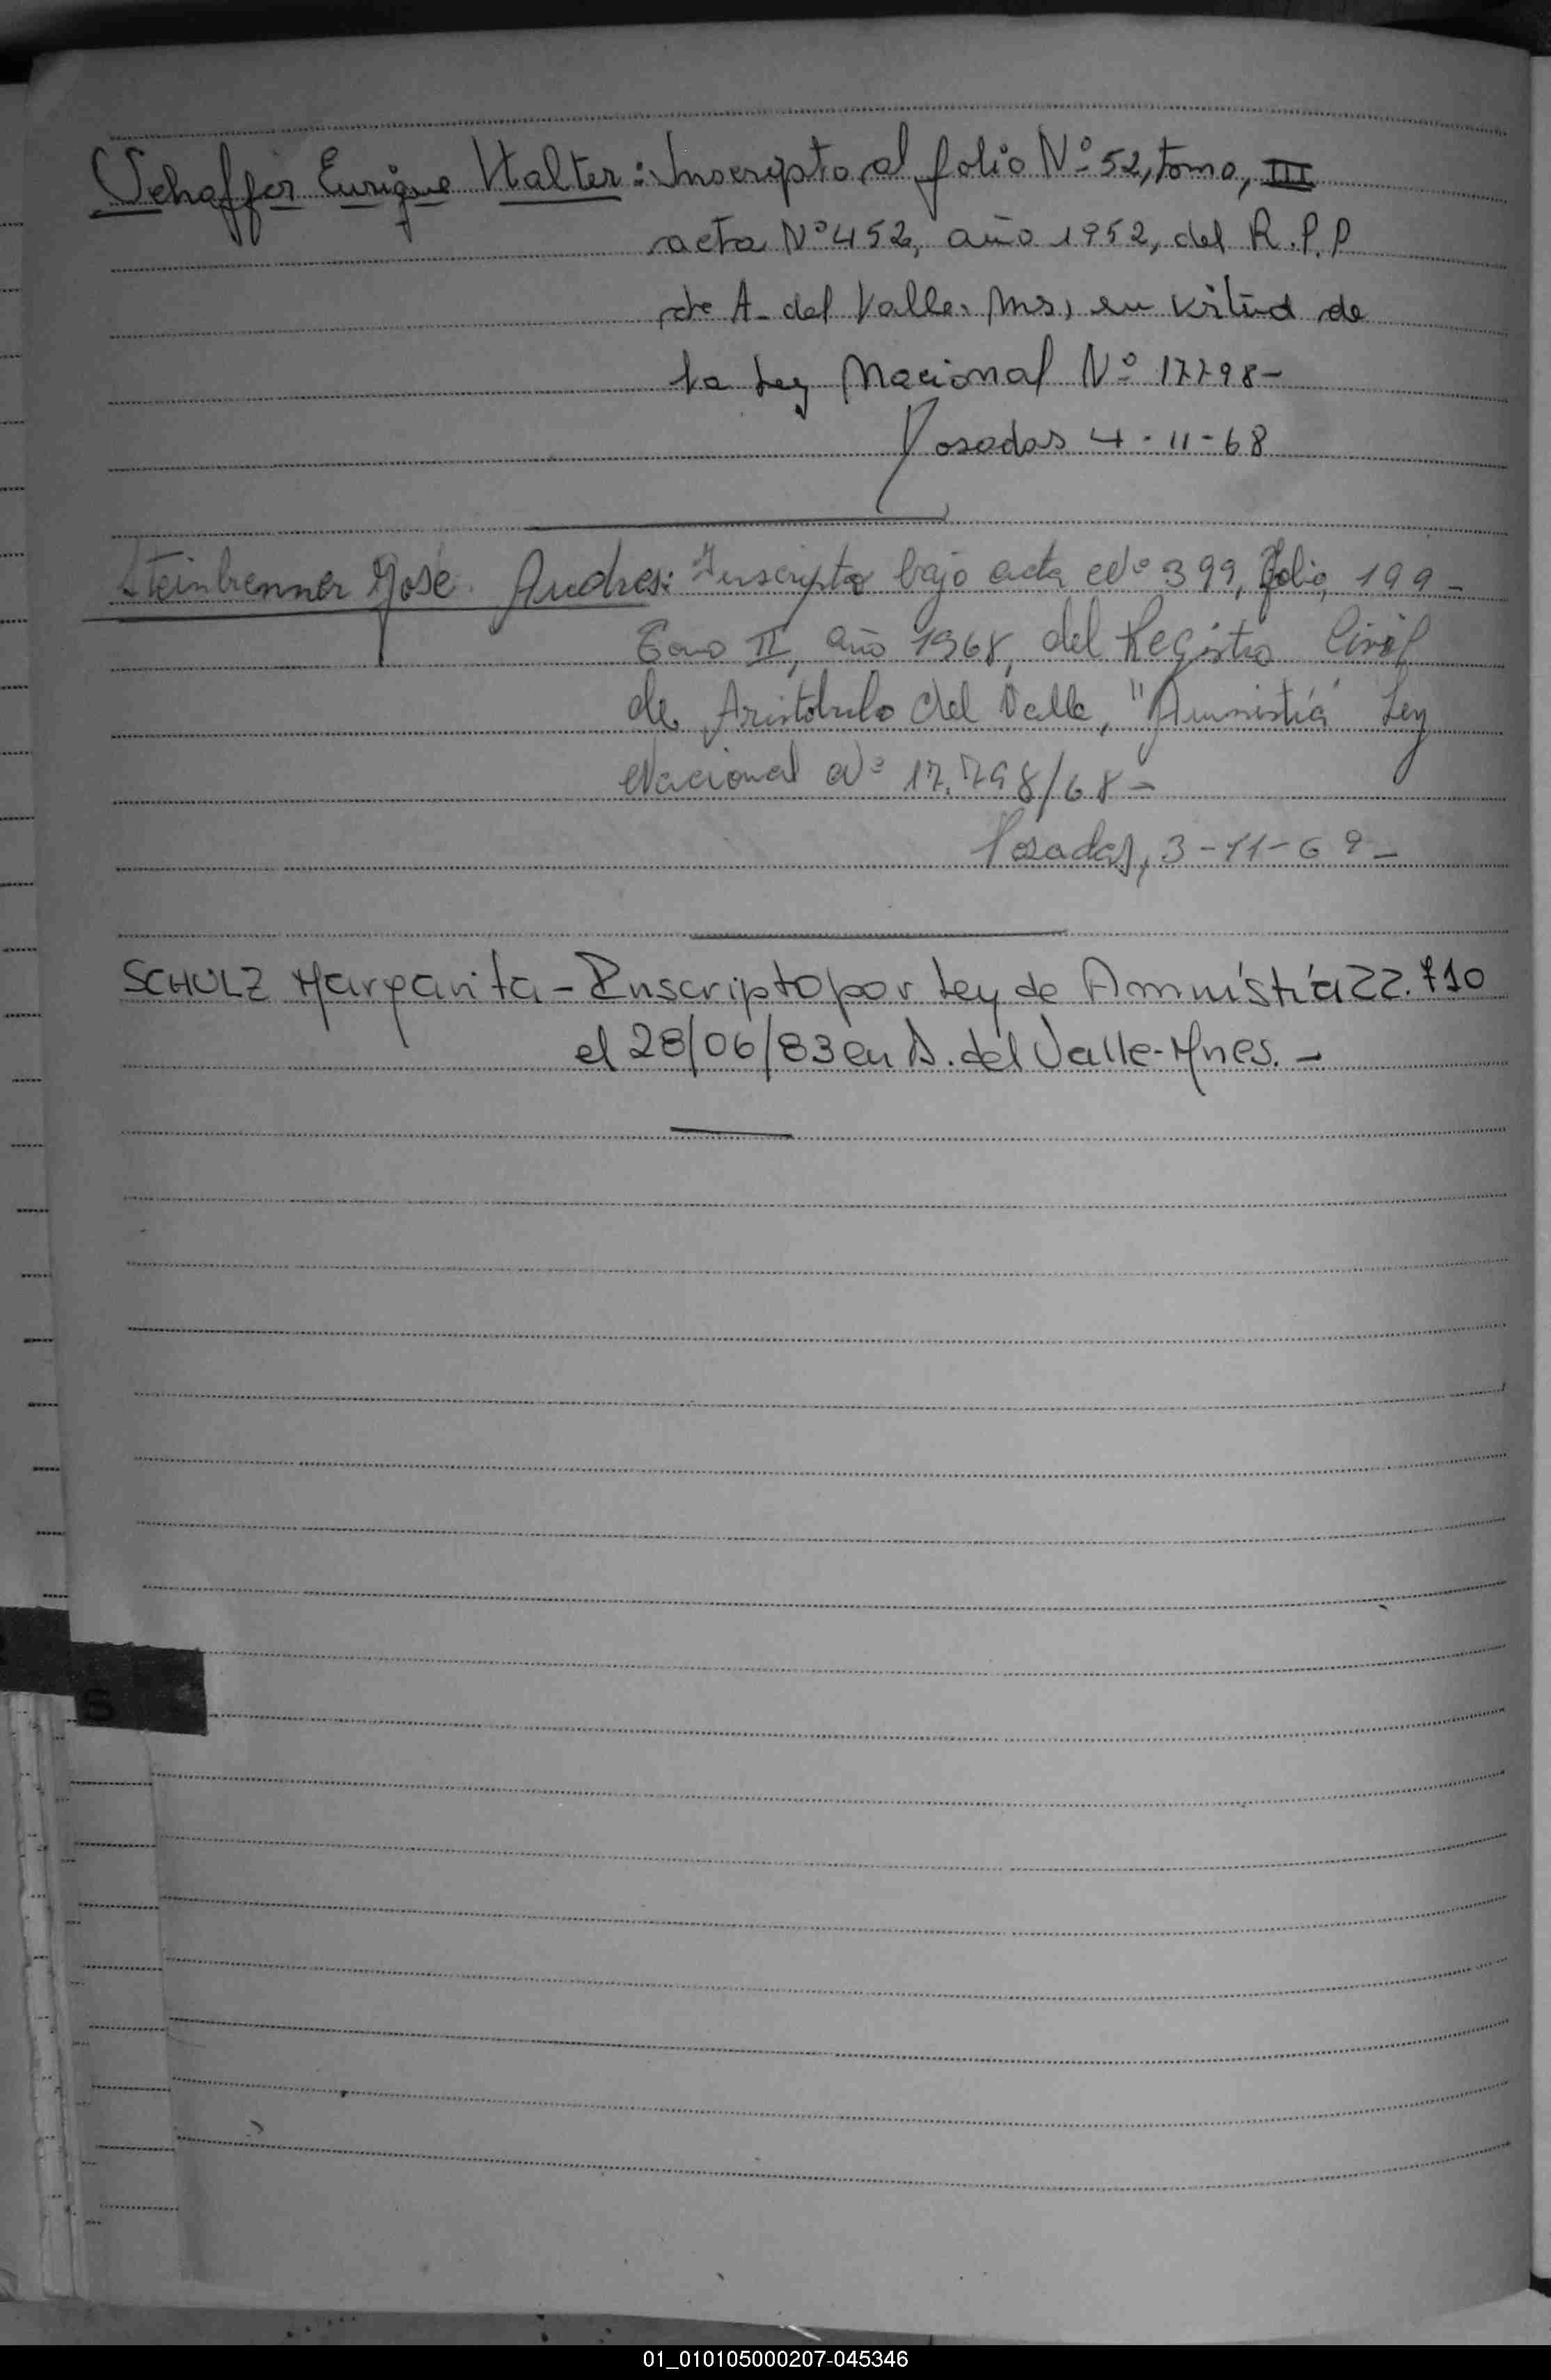 Schaffer Enrique Walter: Inscripto al folio Nº 52, tomo, III
acta Nº 452, año 1952, del R.P.P
de A. del Valle. Mns, en virtud de
la Ley Nacional Nº 17798-
Posadas 4-11-68
Steinbrenner José Andres: Inscripto bajo acta Nº 399, folio, 199-
Tomo II, año 1968, del Registro Civil
de Aristobulo del Valle, "Amnistia" Ley
Nacional Nº 17.798/68-
Posadas, 3-11-69-
SCHULZ Margarita - Inscripto por Ley de Amnistía 22.710
el 28/06/83 en A. del Valle-Mnes.-
S
01_010105000207-045346